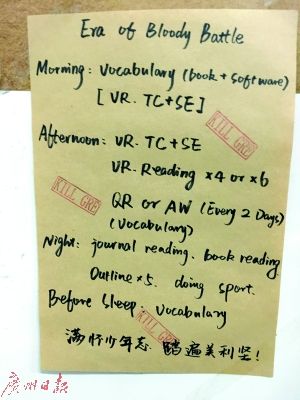 Era of Bloody Battle
Morning: Vocabulary (book + software)
[VR. TC+SE]
Afternoon: VR. TC+SE
KILL GRE
VR. Reading ×4 or ×6
KILL GRE
QR or AW (Every 2 Days)
(Vocabulary)
Night: journal reading. book reading.
Outline ×5. doing sport.
Before Sleep. Vocabulary
KILL GRE
满怀少年志 踏遍美利坚!
广州日报